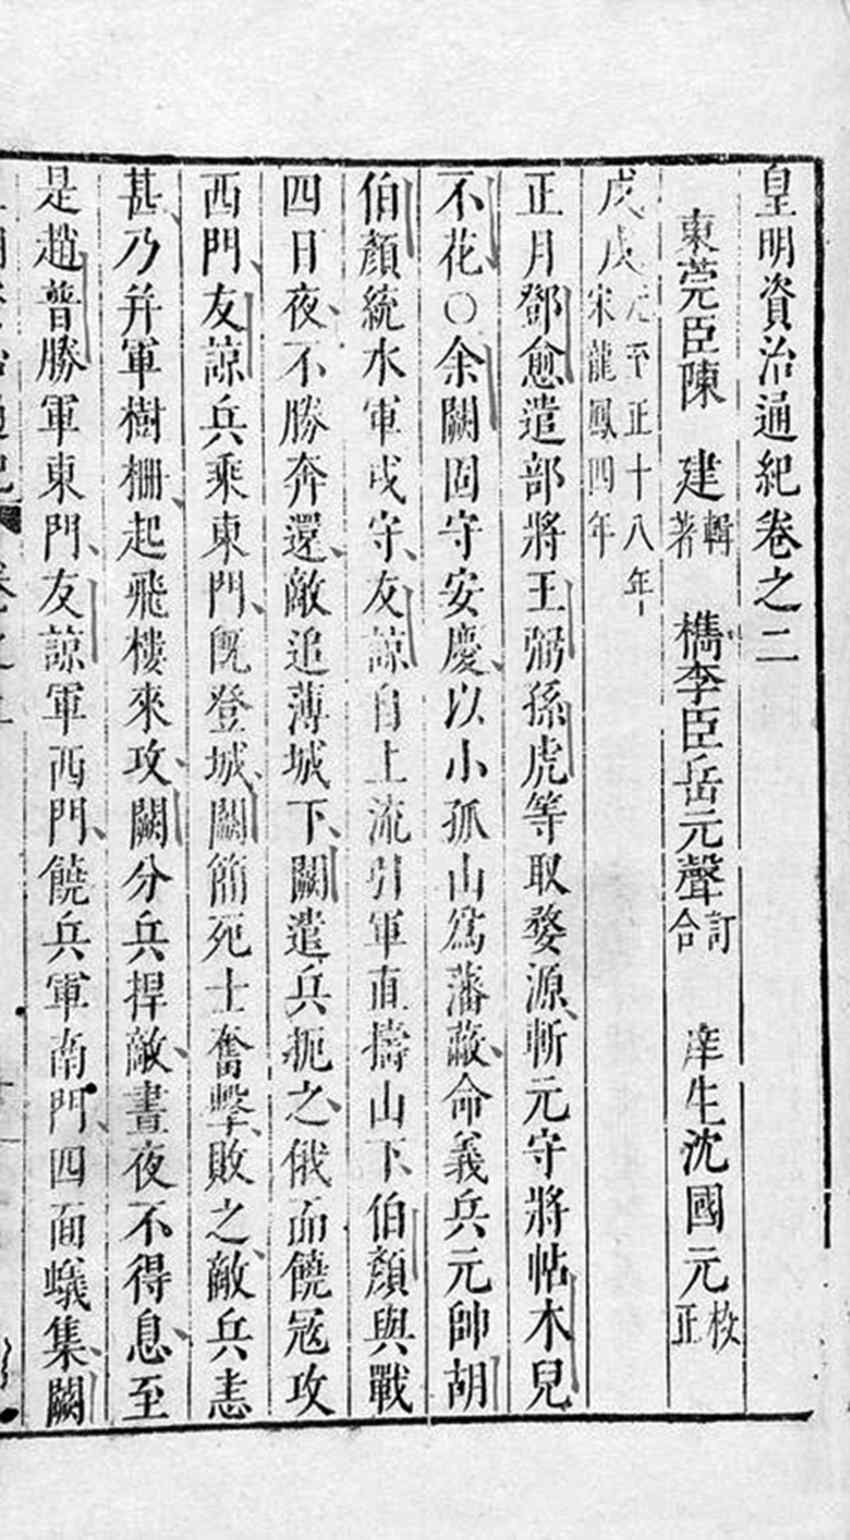 皇明資治通紀卷之二
東莞臣陳　建輯著　檇李臣岳元聲訂合　庠生沈國元校正
戊戌元至正十八年宋龍鳳四年
正月鄧愈遣部將王弼孫虎等取婺源斬元守將帖木兒
不花○余闕固守安慶以小孤山爲藩蔽命義兵元帥胡
伯顏統水軍戍守友諒自上流引軍直擣山下伯顏與戰
四日夜不勝奔還敵追薄城下闕遣兵扼之俄而饒冦攻
西門友諒兵乘東門旣登城闕簡死士奮擊敗之敵兵恚
甚乃并軍樹柵起飛樓來攻闕分兵捍敵晝夜不得息至
是趙普勝軍東門友諒軍西門饒兵軍南門四面蟻集闕